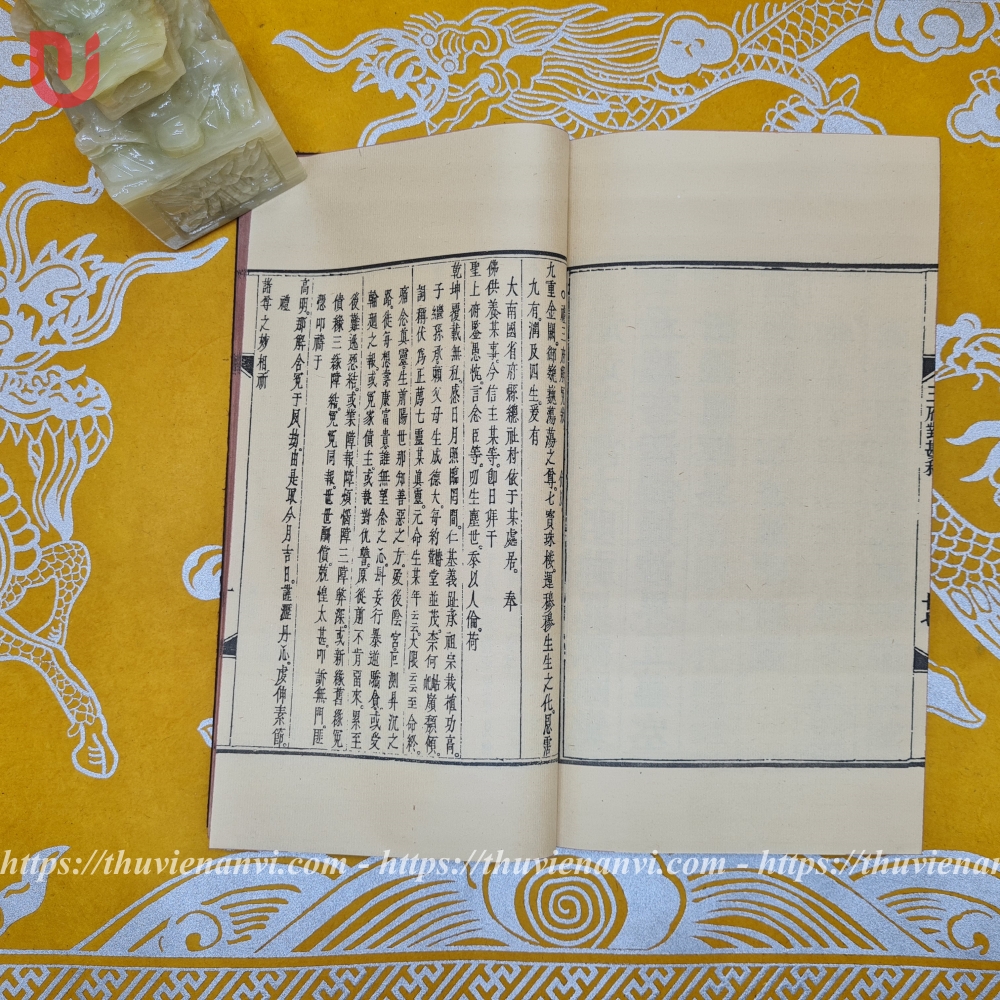 九重金闕御巍巍蕩蕩之尊七寶珠楼運穆穆生生之化恩霑
九有潤及四生爰有
大南國省府縣總社村依于某處居。 奉
佛供養某事今信主某等即日拜干
聖上俯鑒愚忱言念臣等叨生塵世忝以人倫荷
乾坤覆載無私感日月照臨罔間仁基義趾承祖宗栽植功高
子繼孫承頼父母生成德大每約 堂並茂柰何 嶺頹傾
詞稱伏為正薦七靈某眞靈元命生某年云云大限云云至命終
痛念眞靈生前陽世那知善惡之方歿後陰宮叵測昇沉之
路徒每想壽康富貴誰無望念之心 妄行暴道驕貪或受
輪廻之報或冤家債主或 對仇讐原從 不肯 來累至
後難逃怨結或業障報障煩惱障三障弊深或新緣舊緣冤
債緣三緣障結冤冤同報世世酬償兢惶太甚叩訴無門匪
懇叩禱于
高明那解含冤于夙劫由是取今月吉日謹瀝丹心虔伸素節
禮
諸尊之妙相祈
三府對
https://thuvienanvi.com - https://thuvienanvi.com - https://thuviena